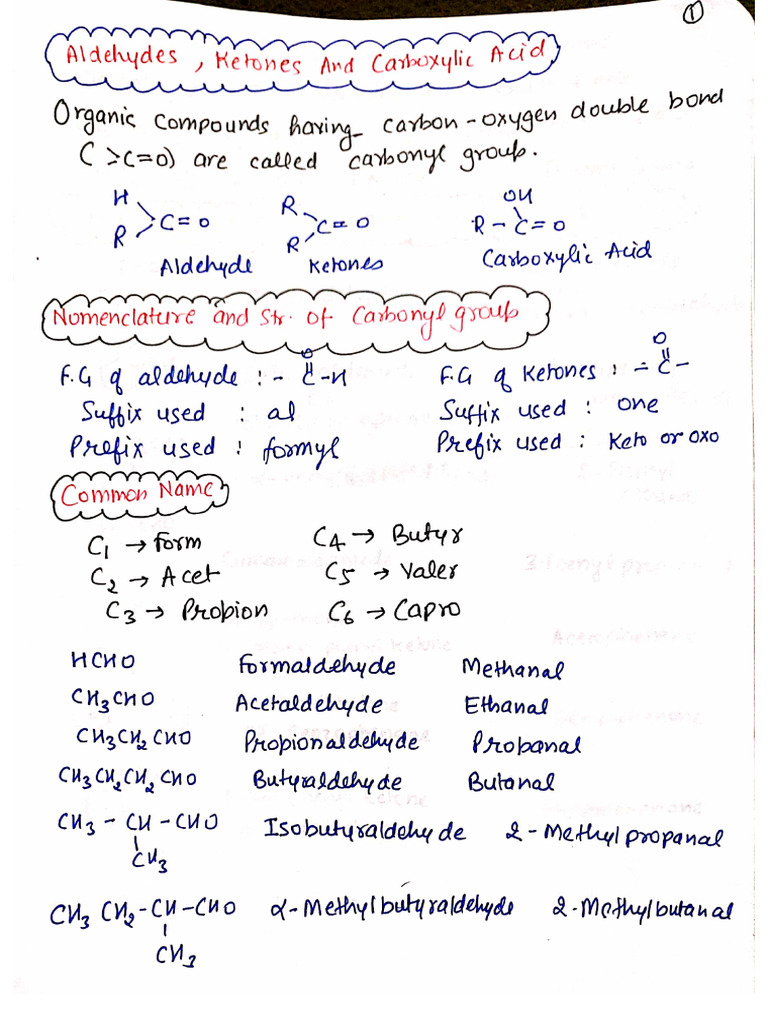 ①
Aldehydes, Ketones And Carboxylic Acid
Organic Compounds having carbon-oxygen double bond
( >C=O) are called carbonyl group.
H R OH
>C=O >C=O R-C=O
R R
Aldehyde Ketones Carboxylic Acid
Nomenclature and Str. of Carbonyl group
O O
F.G of aldehyde :- -C-H F.G of Ketones : -C-
Suffix used : al Suffix used : one
Prefix used : formyl Prefix used : Keto or oxo
Common Name
C₁ → form C₄ → Butyr
C₂ → Acet C₅ → Valer
C₃ → Propion C₆ → Capro
HCHO Formaldehyde Methanal
CH₃CHO Acetaldehyde Ethanal
CH₃CH₂CHO Propionaldehyde Propanal
CH₃CH₂CH₂CHO Butyraldehyde Butanal
CH₃-CH-CHO Isobutyraldehyde 2-Methylpropanal
CH₃
CH₃CH₂-CH-CHO α-Methylbutyraldehyde 2-Methylbutanal
CH₃